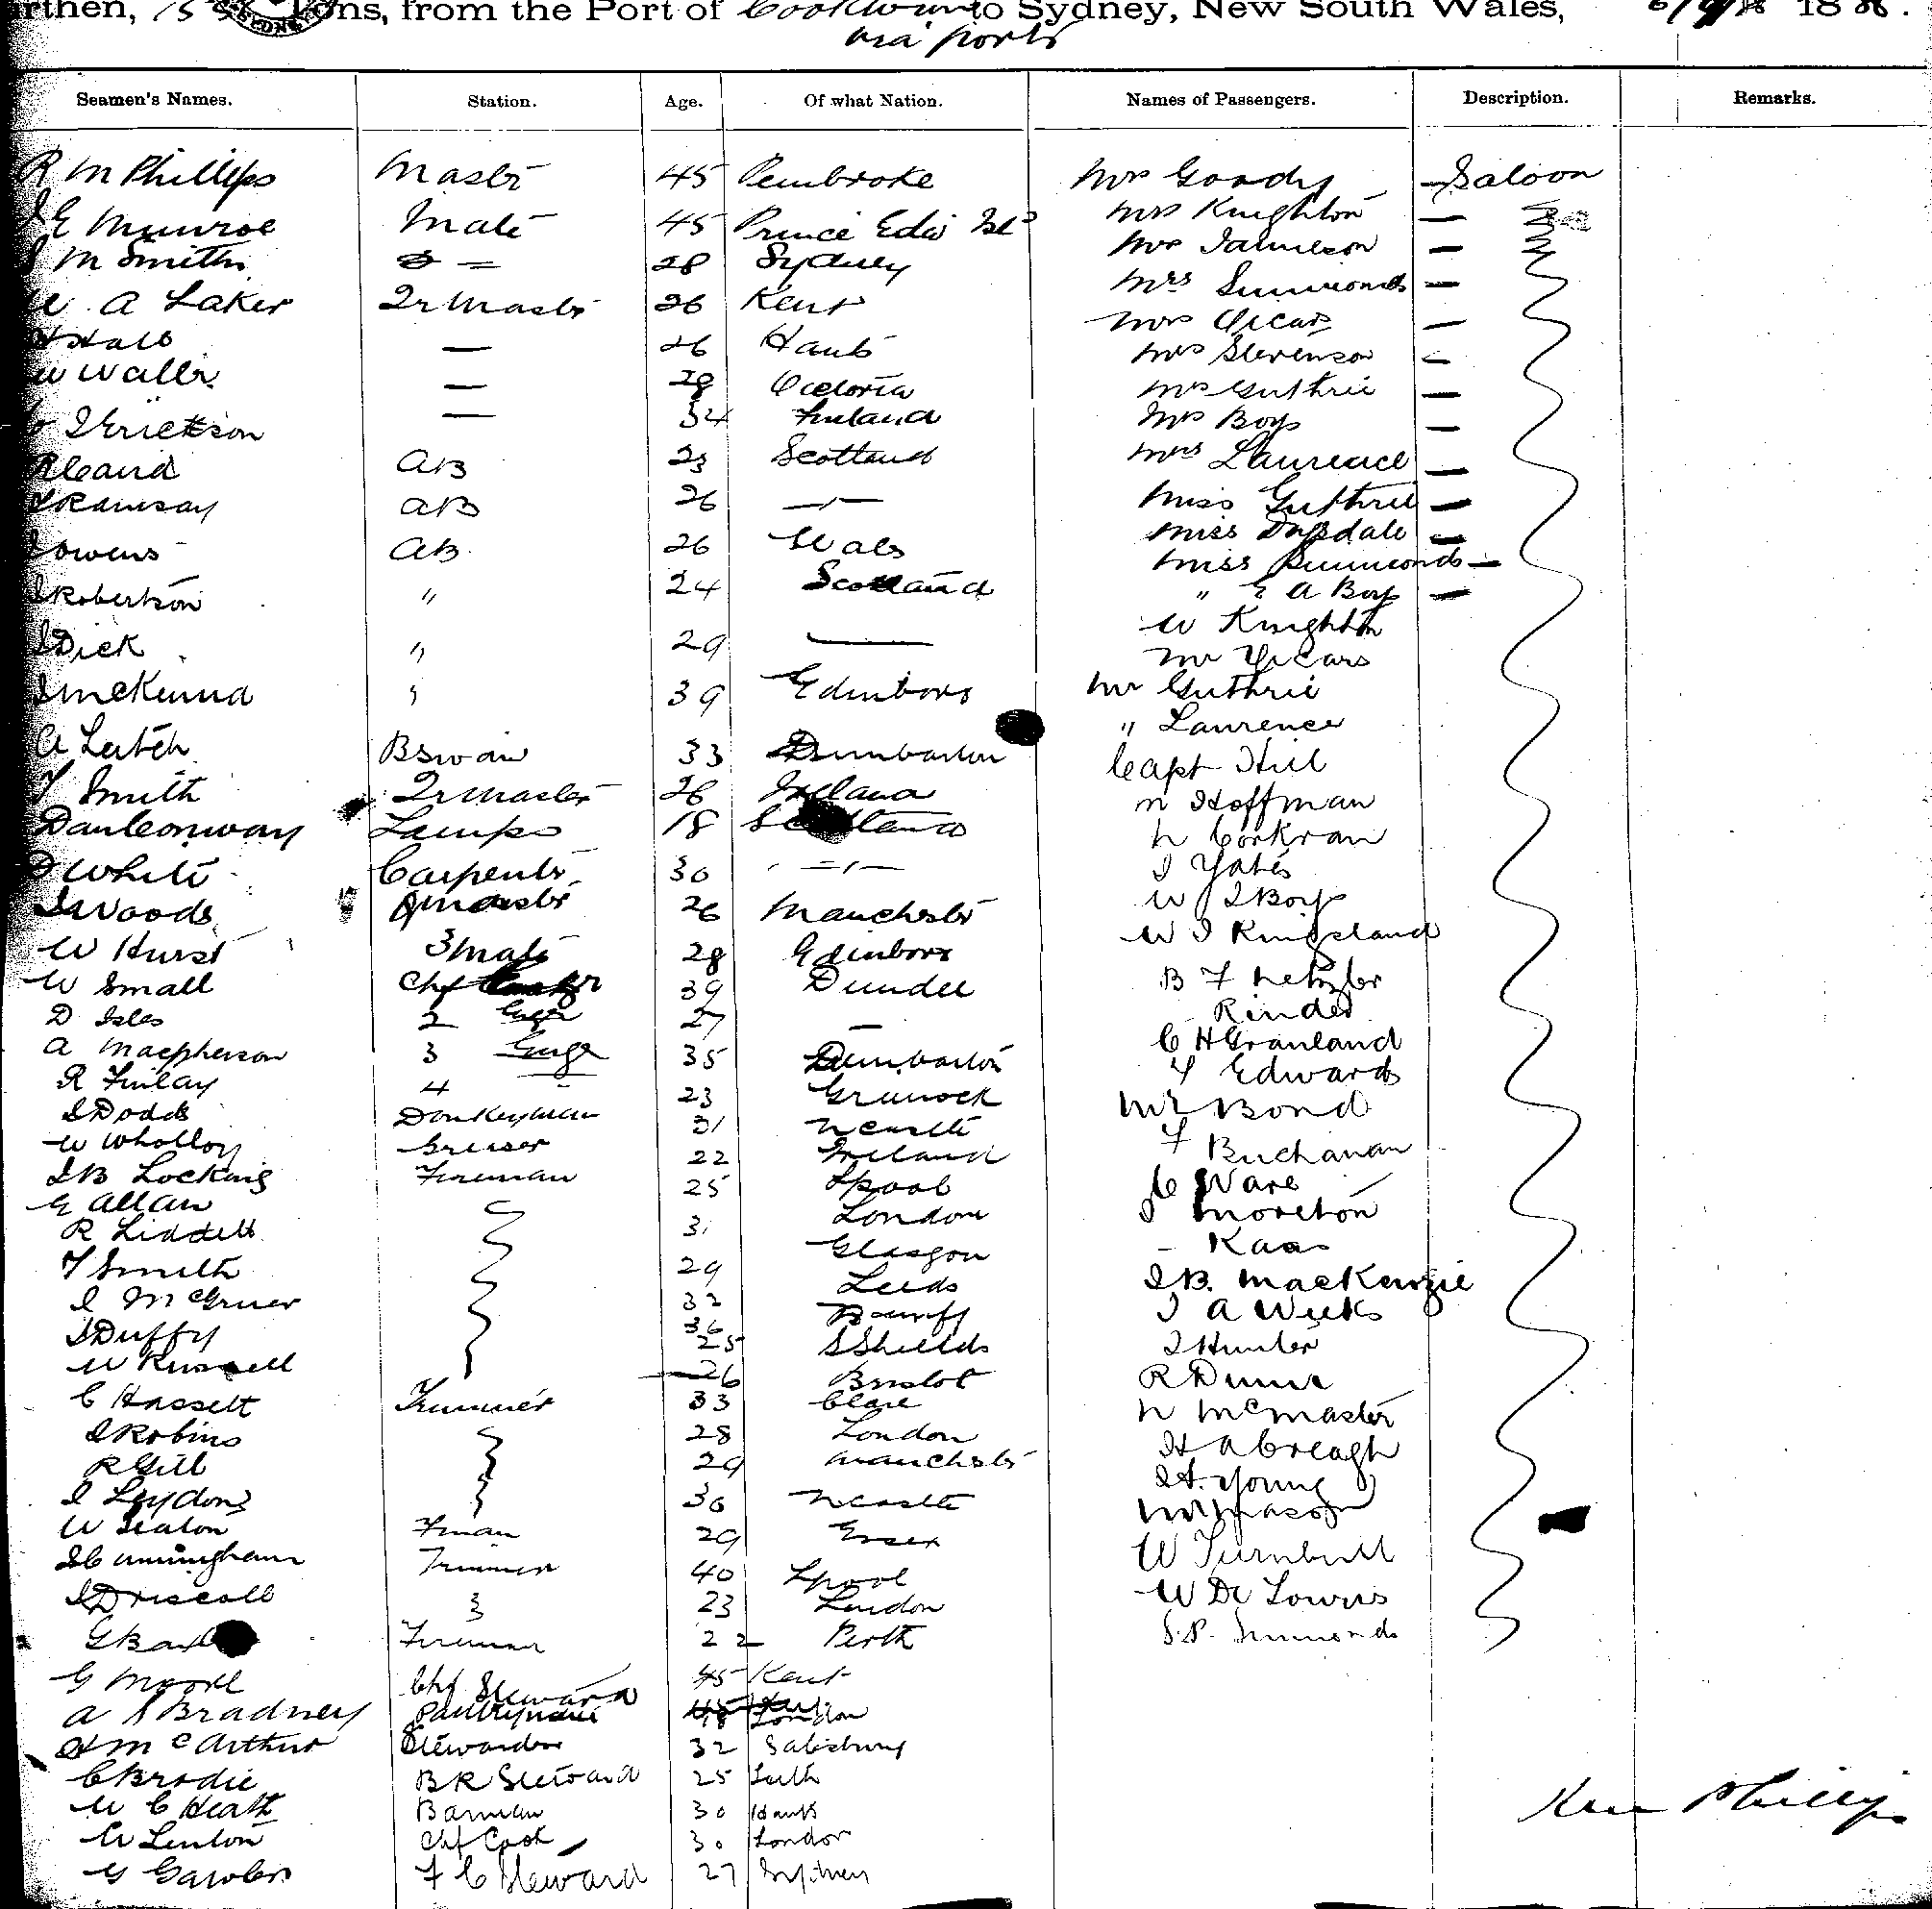 rthen, tons, from the Port of Cooktown to Sydney, New South Wales, 1888.
via ports
Seamen's Names. Station. Age. Of what Nation. Names of Passengers. Description. Remarks.
R M Phillips Master 45 Pembroke Mrs Goody — Saloon
E Munroe Mate 45 Prince Edw Isld Mrs Knighton —
M Smith 28 Sydney Mrs Jamieson —
A Laker Qr Master 26 Kent Mrs Simmonds —
— 26 Hants Mrs Vicars —
W Waller — 28 Victoria Mrs Stevenson —
J Erickson — 34 Finland Mrs Guthrie —
Mrs Boys —
AB 23 Scotland Mrs Laurence —
J Ramsay AB 26 —"— Miss Guthrie —
J Owens AB 26 Wales Miss Drysdale —
Miss Simmonds —
J Robertson " 24 Scotland " E A Boys —
W Knighton
J Dick " 29 — Mr Vicars
J McKenna " 39 Edinboro Mr Guthrie
" Laurence
A Leitch BSwain 33 Dumbarton Capt Hill
T Smith Qr Master 26 Ireland N Hoffman
Dan Conway Lamps 18 Scotland N Corkran
J White Carpenter 30 —"— J Yates
J Woods Qr Master 26 Manchester W J Boys
W Hurst 3 Mate 28 Edinboro W J Kingsland
W Small Chf Engr 39 Dundee B F
D Isles 2 Engr 27 — Rinder
A Macpherson 3 Engr 35 Dumbarton C H Granland
R Finlay 4 23 Greenock Edwards
J Dodds Donkeyman 31 Ncastle Mr Bond
W Wholloy Greaser 22 Ireland F Buchanan
J B Locking Fireman 25 Lpool C Ware
G Allan 31 London J Moreton
R Liddell Glasgow Kaas
T Smith 29 Leeds J B. MacKenzie
J McGruer 32 Banff J A Weeks
J Duffy 36 S Shields J Hunter
W Russell 25
26 Bristol R Dunne
C Hassett Trimmer 33 Clare N McMaster
J Robins 28 London H A Creagh
R Gill 29 Manchester H. Young
J Leydon 30 Ncastle Mr Mason
W Seaton Fman 29 Essex W Turnbull
J Cunningham Trimmer 40 Lpool W De Lowris
J Driscoll 23 London S. P. Simmonds
G Fireman 22 Perth
G Moore Chf Steward 45 Kent
A S Bradney Pantryman 48 London
H McArthur Stewardess 32 Salisbury
C Brodie B R Steward 25 Leith
W C Heath Barman 30 Hants
W Lenton Chf Cook 30 London
G Gawler F C Steward 27 Sydney
Phillips